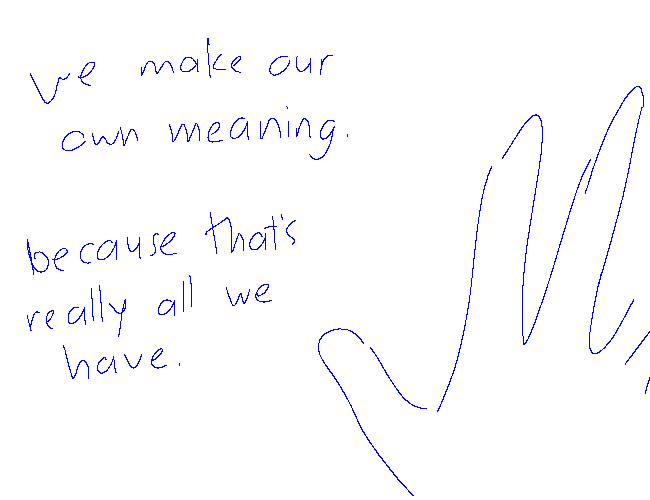 we make our
own meaning.
because that's
really all we
have.